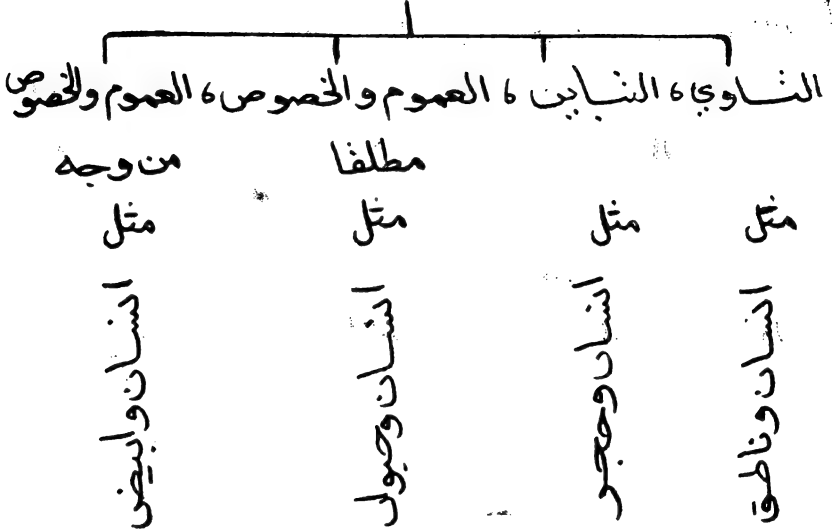 التساوي، التباين، العموم والخصوص، العموم والخصوص
مطلقا من وجه
مثل مثل مثل مثل
انسان وناطق
انسان وحجر
انسان وحيوان
انسان وابيض